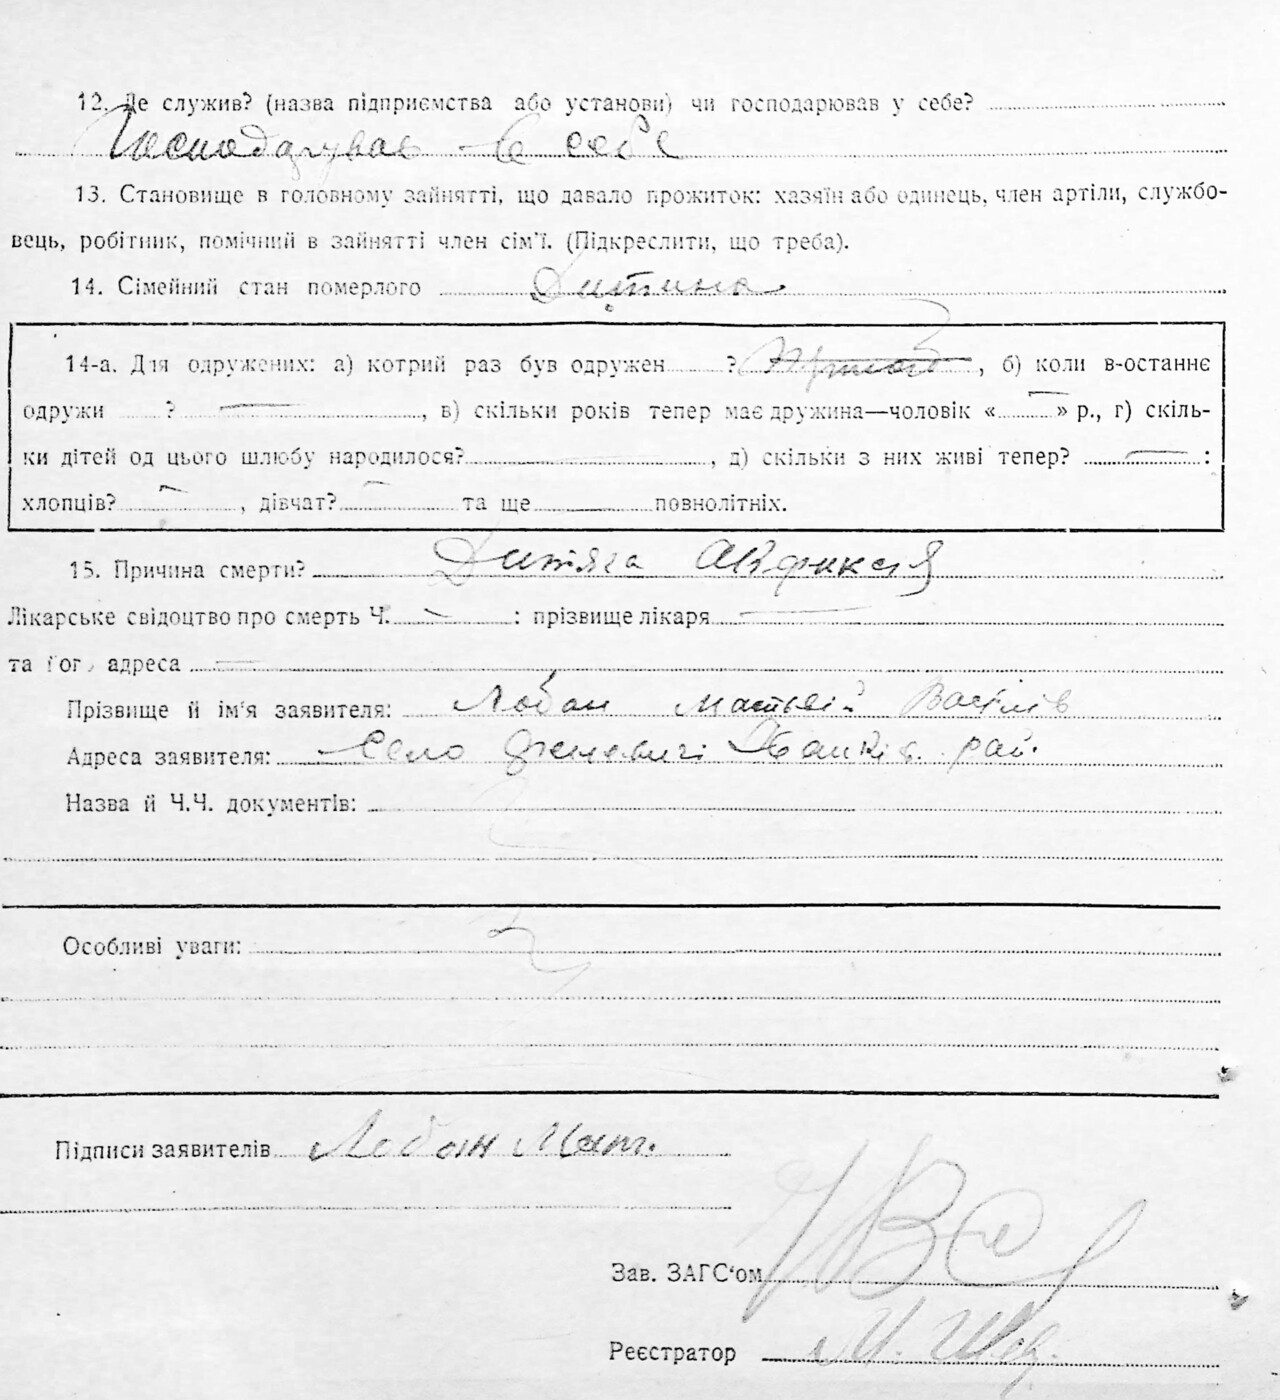 12. Де служив? (назва підприємства або установи) чи господарював у себе?
Господарував в себе
13. Становище в головному зайнятті, що давало прожиток: хазяїн або одинець, член артіли, службо-
вець, робітник, помічний в зайнятті член сім'ї. (Підкреслити, що треба).
14. Сімейний стан померлого Дитина
14-а. Для одружених: а) котрий раз був одружен ? , б) коли в-останнє
одружи ? — , в) скільки років тепер має дружина—чоловік « — » р., г) скіль-
ки дітей од цього шлюбу народилося? , д) скільки з них живі тепер? — :
хлопців? — , дівчат? — та ще повнолітніх.
15. Причина смерти? Дитяча
Лікарське свідоцтво про смерть Ч. — : прізвище лікаря —
та адреса —
Прізвище й ім'я заявителя: Лобан Матвій Васілів
Адреса заявителя: Село рай.
Назва й Ч.Ч. документів:
Особливі уваги:
Підписи заявителів Лобан Мат.
Зав. ЗАГС‘ом
Реєстратор М.